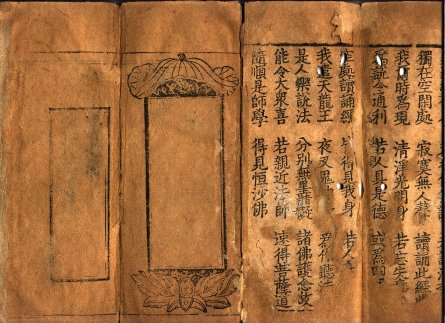 獨在空閑處 寂寞無人 讀誦此經
我 時爲現 清淨光明身 若忘失
爲說令通利 若人具是德 或爲四
處讀誦經 得見我身 若人
我遣天龍王 夜叉鬼 爲作聽法
是人樂說法 分別無罣礙 諸佛護念故
能令大衆喜 若親近法師 速得菩薩道
隨順是師學 得見恒沙佛